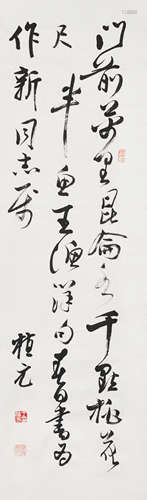 门前万里昆仑水千点桃花
尺半鱼王渔洋句春日书为
作新同志属
植元